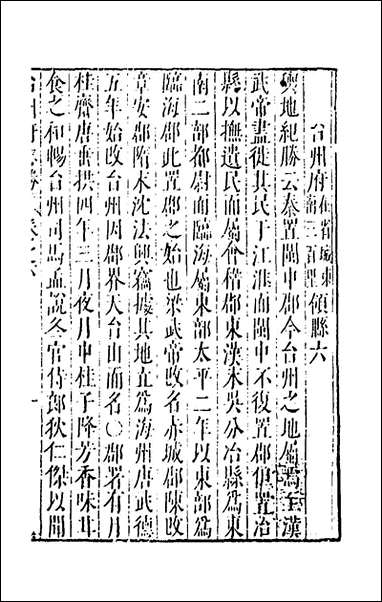 台州府在省城東南三百里領縣六
輿地紀勝云秦置閩中郡今台州之地屬焉至漢
武帝盡徙其民于江淮而閩中不復置郡但置冶
縣以撫遺民而屬會稽郡東漢末吳分冶縣爲東
南二部都尉而臨海屬東部太平二年以東部爲
臨海郡此置郡之始也梁武帝改名赤城郡陳改
章安郡隋末沈法興竊據其地直爲海州唐武德
五年始改台州因郡界天台山而名〇郡署有月
桂齋唐垂拱四年三月夜月中桂子降芳香味辛
食之和暢台州司馬孟詵冬官侍郎狄仁傑以聞